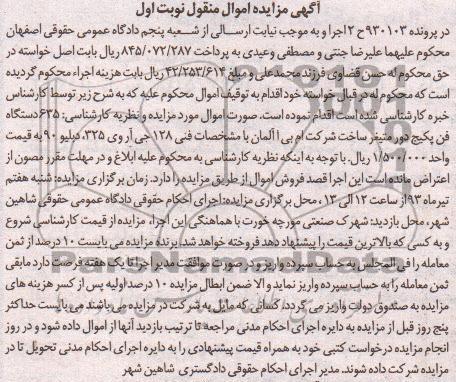 آگهی مزایده اموال منقول نوبت اول
در پرونده ۹۳۰۱۰۳ ح ۲ اجرا و به موجب نیابت ارسالی از شعبه پنجم دادگاه عمومی حقوقی اصفهان
محکوم علیهما علیرضا جنتی و مصطفی وعیدی به پرداخت ۸۴۵/۰۷۲/۲۸۷ ریال بابت اصل خواسته در
حق محکوم له حسن قضاوی فرزند محمدعلی و مبلغ ۴۲/۲۵۳/۶۱۴ ریال بابت هزینه اجراء محکوم گردیده
است که محکوم له در قبال خواسته خود اقدام به توقیف اموال محکوم علیه که به شرح زیر توسط کارشناس
خبره کارشناسی شده است اقدام نموده است. صورت اموال مورد مزایده و نظریه کارشناسی: ۶۳۵ دستگاه
فن پکیج دور متغیر ساخت شرکت ام بی ا آلمان با مشخصات فنی ۱۲۸ جی آر وی ۳۲۵، دبلیو ۹۰ به قیمت
واحد ۱/۵۰۰/۰۰۰ ریال. با توجه به اینکه نظریه کارشناسی به محکوم علیه ابلاغ و در مهلت مقرر مصون از
اعتراض مانده است این اجرا قصد فروش اموال از طریق مزایده را دارد. زمان برگزاری مزایده: شنبه هفتم
تیرماه ۹۳ از ساعت ۱۲ الی ۱۳، محل برگزاری مزایده: اجرای احکام حقوقی دادگاه عمومی حقوقی شاهین
شهر، محل بازدید: شهرک صنعتی مورچه خورت با هماهنگی این اجرا. مزایده از قیمت کارشناسی شروع
و به کسی که بالاترین قیمت را پیشنهاد دهد فروخته خواهد شد. برنده مزایده می بایست ۱۰ درصد از ثمن
معامله را فی المجلس به حساب سپرده واریز و در صورت موافقت مدیر اجرا تا یک هفته فرصت دارد مابقی
ثمن معامله را به حساب سپرده واریز نماید و الا ضمن ابطال مزایده ۱۰ درصد اولیه پس از کسر هزینه های
مزایده به صندوق دولت واریز می گردد. کسانی که مایل به شرکت در مزایده می باشند می بایست حداکثر
پنج روز قبل از مزایده به دایره اجرای احکام مدنی مراجعه تا ترتیب بازدید آنها از اموال داده شود و در روز
انجام مزایده درخواست کتبی خود به همراه قیمت پیشنهادی را به دایره اجرای احکام مدنی تحویل تا در
مزایده شرکت داده شوند. مدیر اجرای احکام حقوقی دادگستری شاهین شهر
ParsNamadData